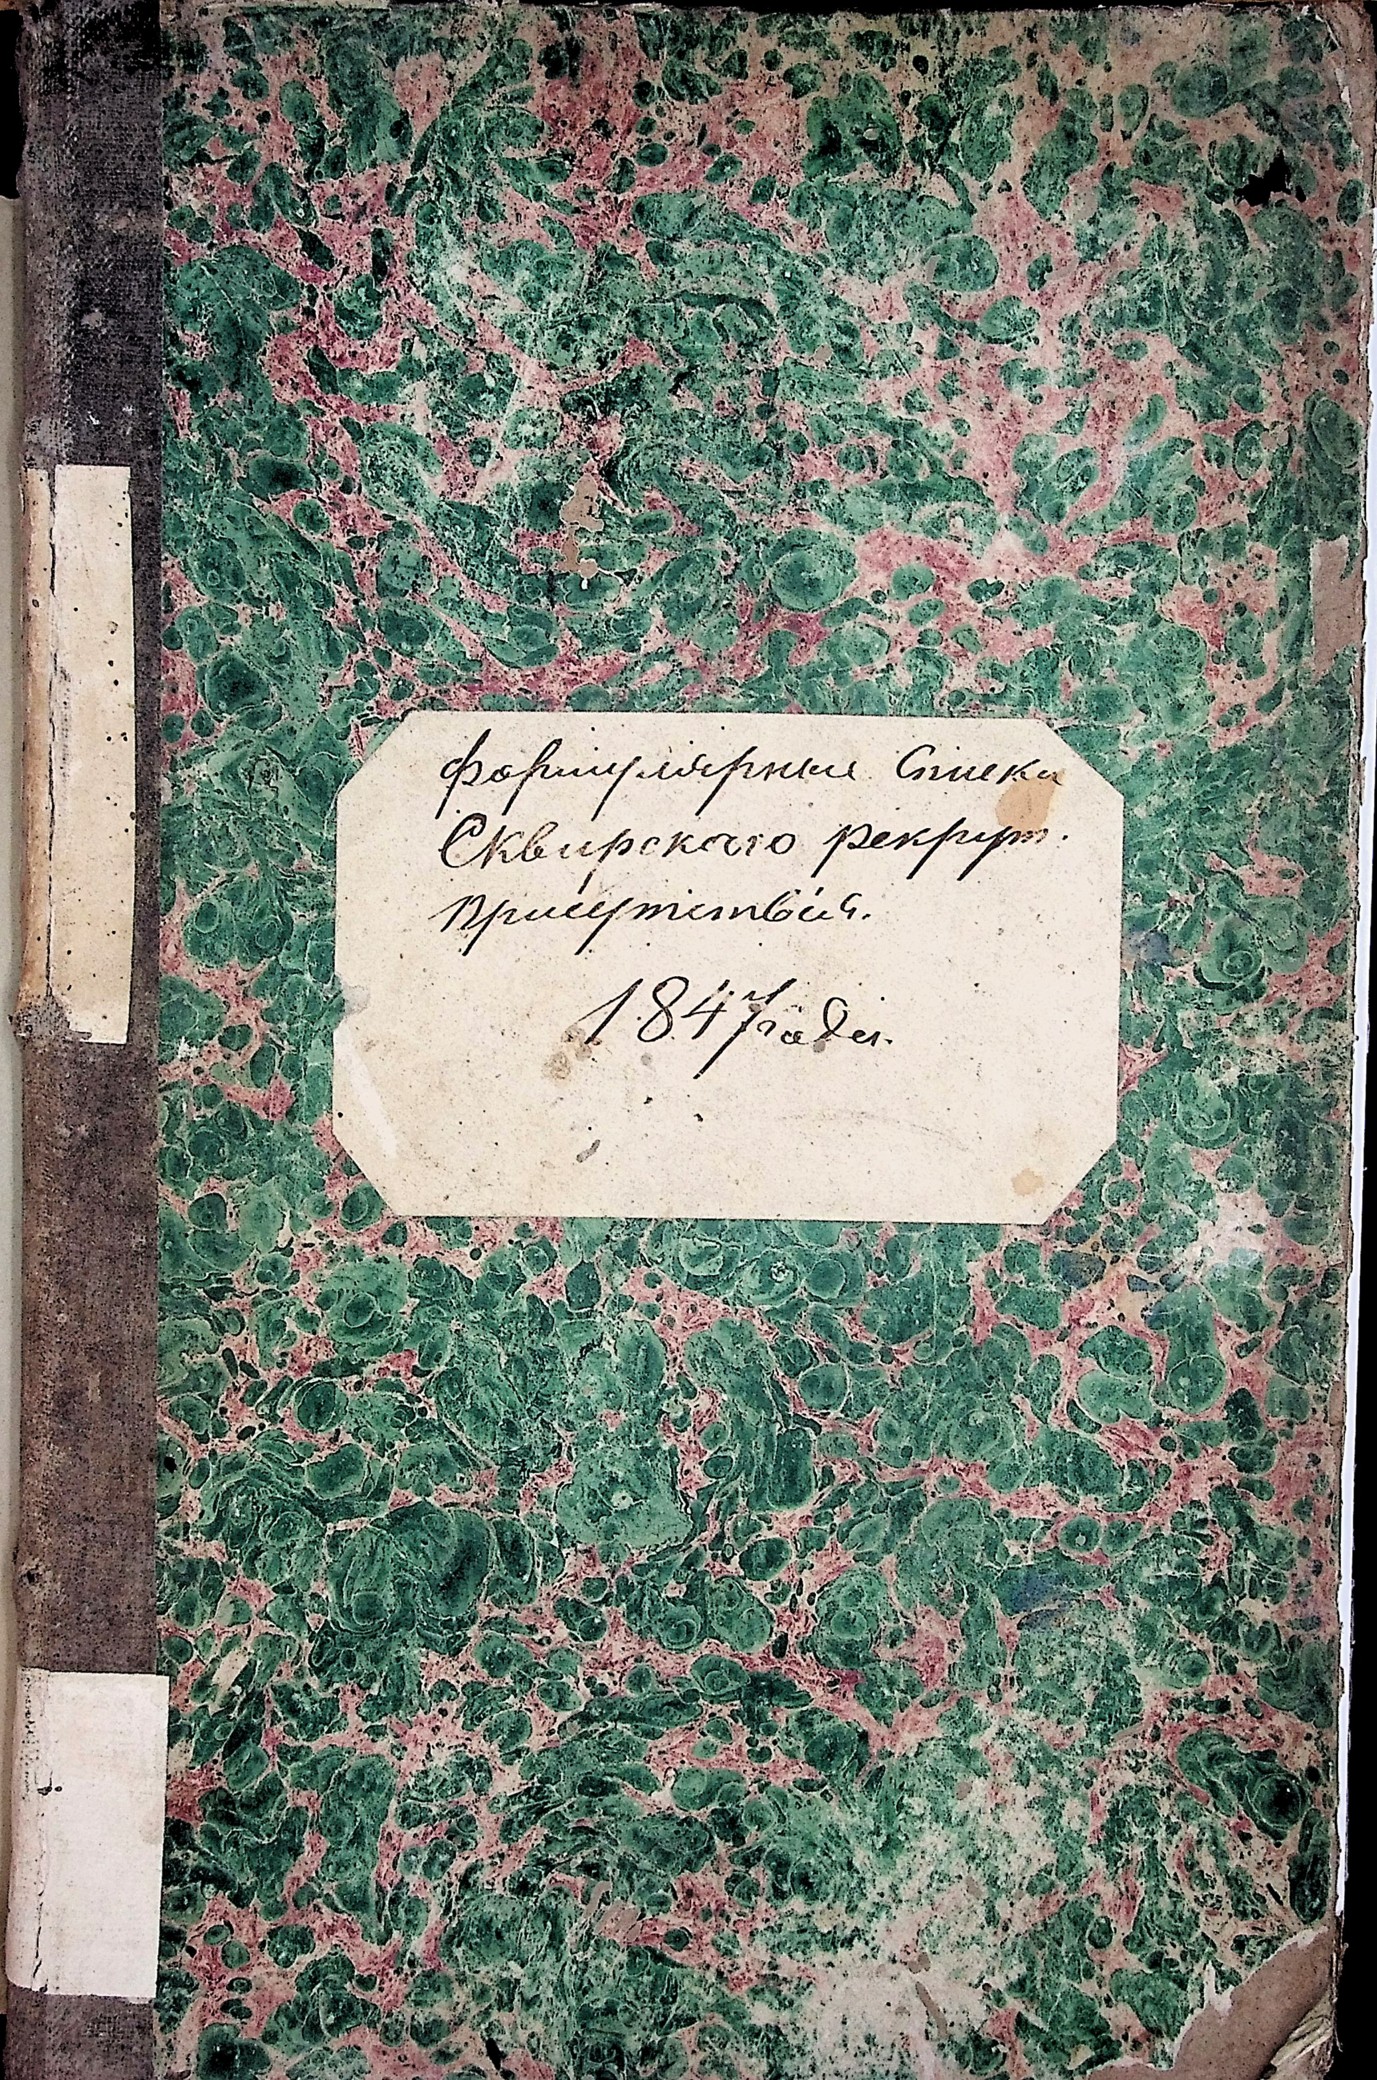 Формулярные Списки
Сквирского рекрут.
Присутствія.
1847 года.